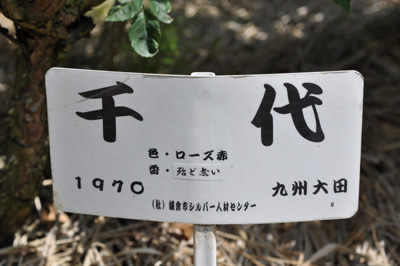 千代
色・ローズ赤
香・殆ど無い
1970 九州大田
(社)鎌倉市シルバー人材センター